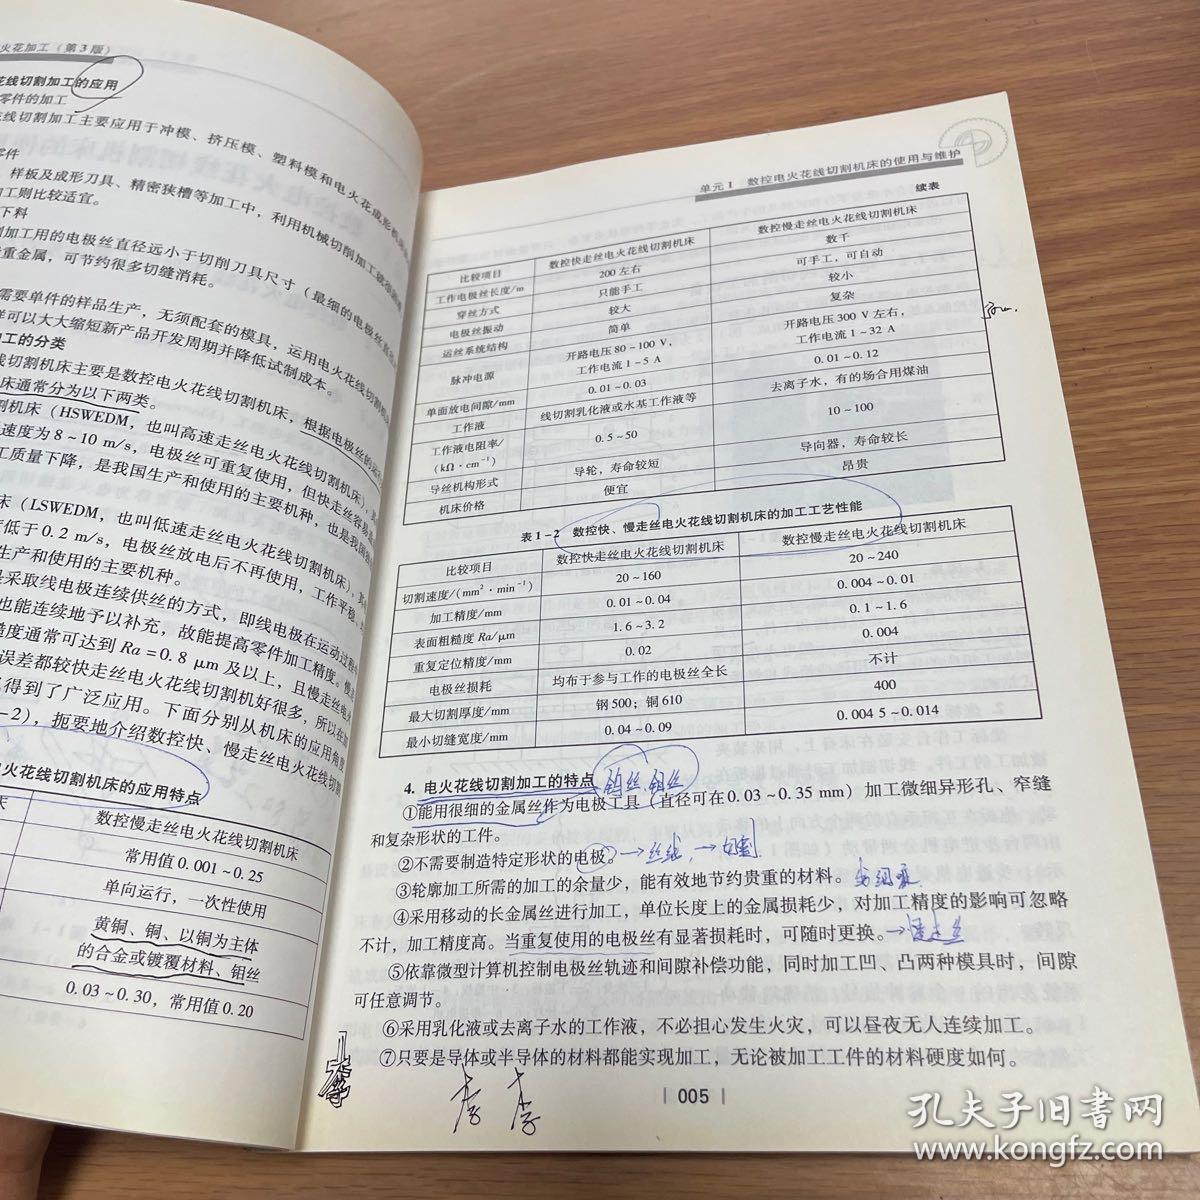 火花加工（第3版）
花线切割加工的应用
零件的加工
线切割加工主要应用于冲模、挤压模、塑料模和电火花成形
零件
样板及成形刀具、精密狭槽等加工中，利用机械切削加工
工则比较适宜。
下料
加工用的电极丝直径远小于切削刀具尺寸（最细的电极丝
重金属，可节约很多切缝消耗。
需要单件的样品生产，无须配套的模具，运用电火花线切割
可以大大缩短新产品开发周期并降低试制成本。
加工的分类
线切割机床主要是数控电火花线切割机床，根据电极丝的运行
床通常分为以下两类。
割机床（HSWEDM，也叫高速走丝电火花线切割机床），
速度为8~10 m/s，电极丝可重复使用，但快走丝容易
工质量下降，是我国生产和使用的主要机种，也是我国
床（LSWEDM，也叫低速走丝电火花线切割机床），
度低于0.2 m/s，电极丝放电后不再使用，工作平稳、
生产和使用的主要机种。
采取线电极连续供丝的方式，即线电极在运动过程
也能连续地予以补充，故能提高零件加工精度。慢
糙度通常可达到Ra=0.8 μm及以上，且慢走丝电火
误差都较快走丝电火花线切割机好很多，所以在
得到了广泛应用。下面分别从机床的应用角度
-2），扼要地介绍数控快、慢走丝电火花线切割
火花线切割机床的应用特点
数控慢走丝电火花线切割机床
常用值0.001~0.25
单向运行，一次性使用
黄铜、铜、以铜为主体
的合金或镀覆材料、钼丝
0.03~0.30，常用值0.20
单元1 数控电火花线切割机床的使用与维护
续表
比较项目 数控快走丝电火花线切割机床 数控慢走丝电火花线切割机床
工作电极丝长度/m 200左右 数千
穿丝方式 只能手工 可手工，可自动
电极丝振动 较大 较小
运丝系统结构 简单 复杂
脉冲电源 开路电压80~100 V， 开路电压300 V左右，
工作电流1~5 A 工作电流1~32 A
单面放电间隙/mm 0.01~0.03 0.01~0.12
工作液 线切割乳化液或水基工作液等 去离子水，有的场合用煤油
工作液电阻率/
(kΩ·cm⁻¹) 0.5~50 10~100
导丝机构形式 导轮，寿命较短 导向器，寿命较长
机床价格 便宜 昂贵
表1-2 数控快、慢走丝电火花线切割机床的加工工艺性能
比较项目 数控快走丝电火花线切割机床 数控慢走丝电火花线切割机床
切割速度/(mm²·min⁻¹) 20~160 20~240
加工精度/mm 0.01~0.04 0.004~0.01
表面粗糙度 Ra/μm 1.6~3.2 0.1~1.6
重复定位精度/mm 0.02 0.004
电极丝损耗 均布于参与工作的电极丝全长 不计
最大切割厚度/mm 钢500；铜610 400
最小切缝宽度/mm 0.04~0.09 0.004 5~0.014
4. 电火花线切割加工的特点 钨丝、钼丝
①能用很细的金属丝作为电极工具（直径可在0.03~0.35 mm）加工微细异形孔、窄缝
和复杂形状的工件。
②不需要制造特定形状的电极。
③轮廓加工所需的加工的余量少，能有效地节约贵重的材料。
④采用移动的长金属丝进行加工，单位长度上的金属损耗少，对加工精度的影响可忽略
不计，加工精度高。当重复使用的电极丝有显著损耗时，可随时更换。→慢走丝
⑤依靠微型计算机控制电极丝轨迹和间隙补偿功能，同时加工凹、凸两种模具时，间隙
可任意调节。
⑥采用乳化液或去离子水的工作液，不必担心发生火灾，可以昼夜无人连续加工。
⑦只要是导体或半导体的材料都能实现加工，无论被加工工件的材料硬度如何。
005
孔夫子旧书网
www.kongfz.com